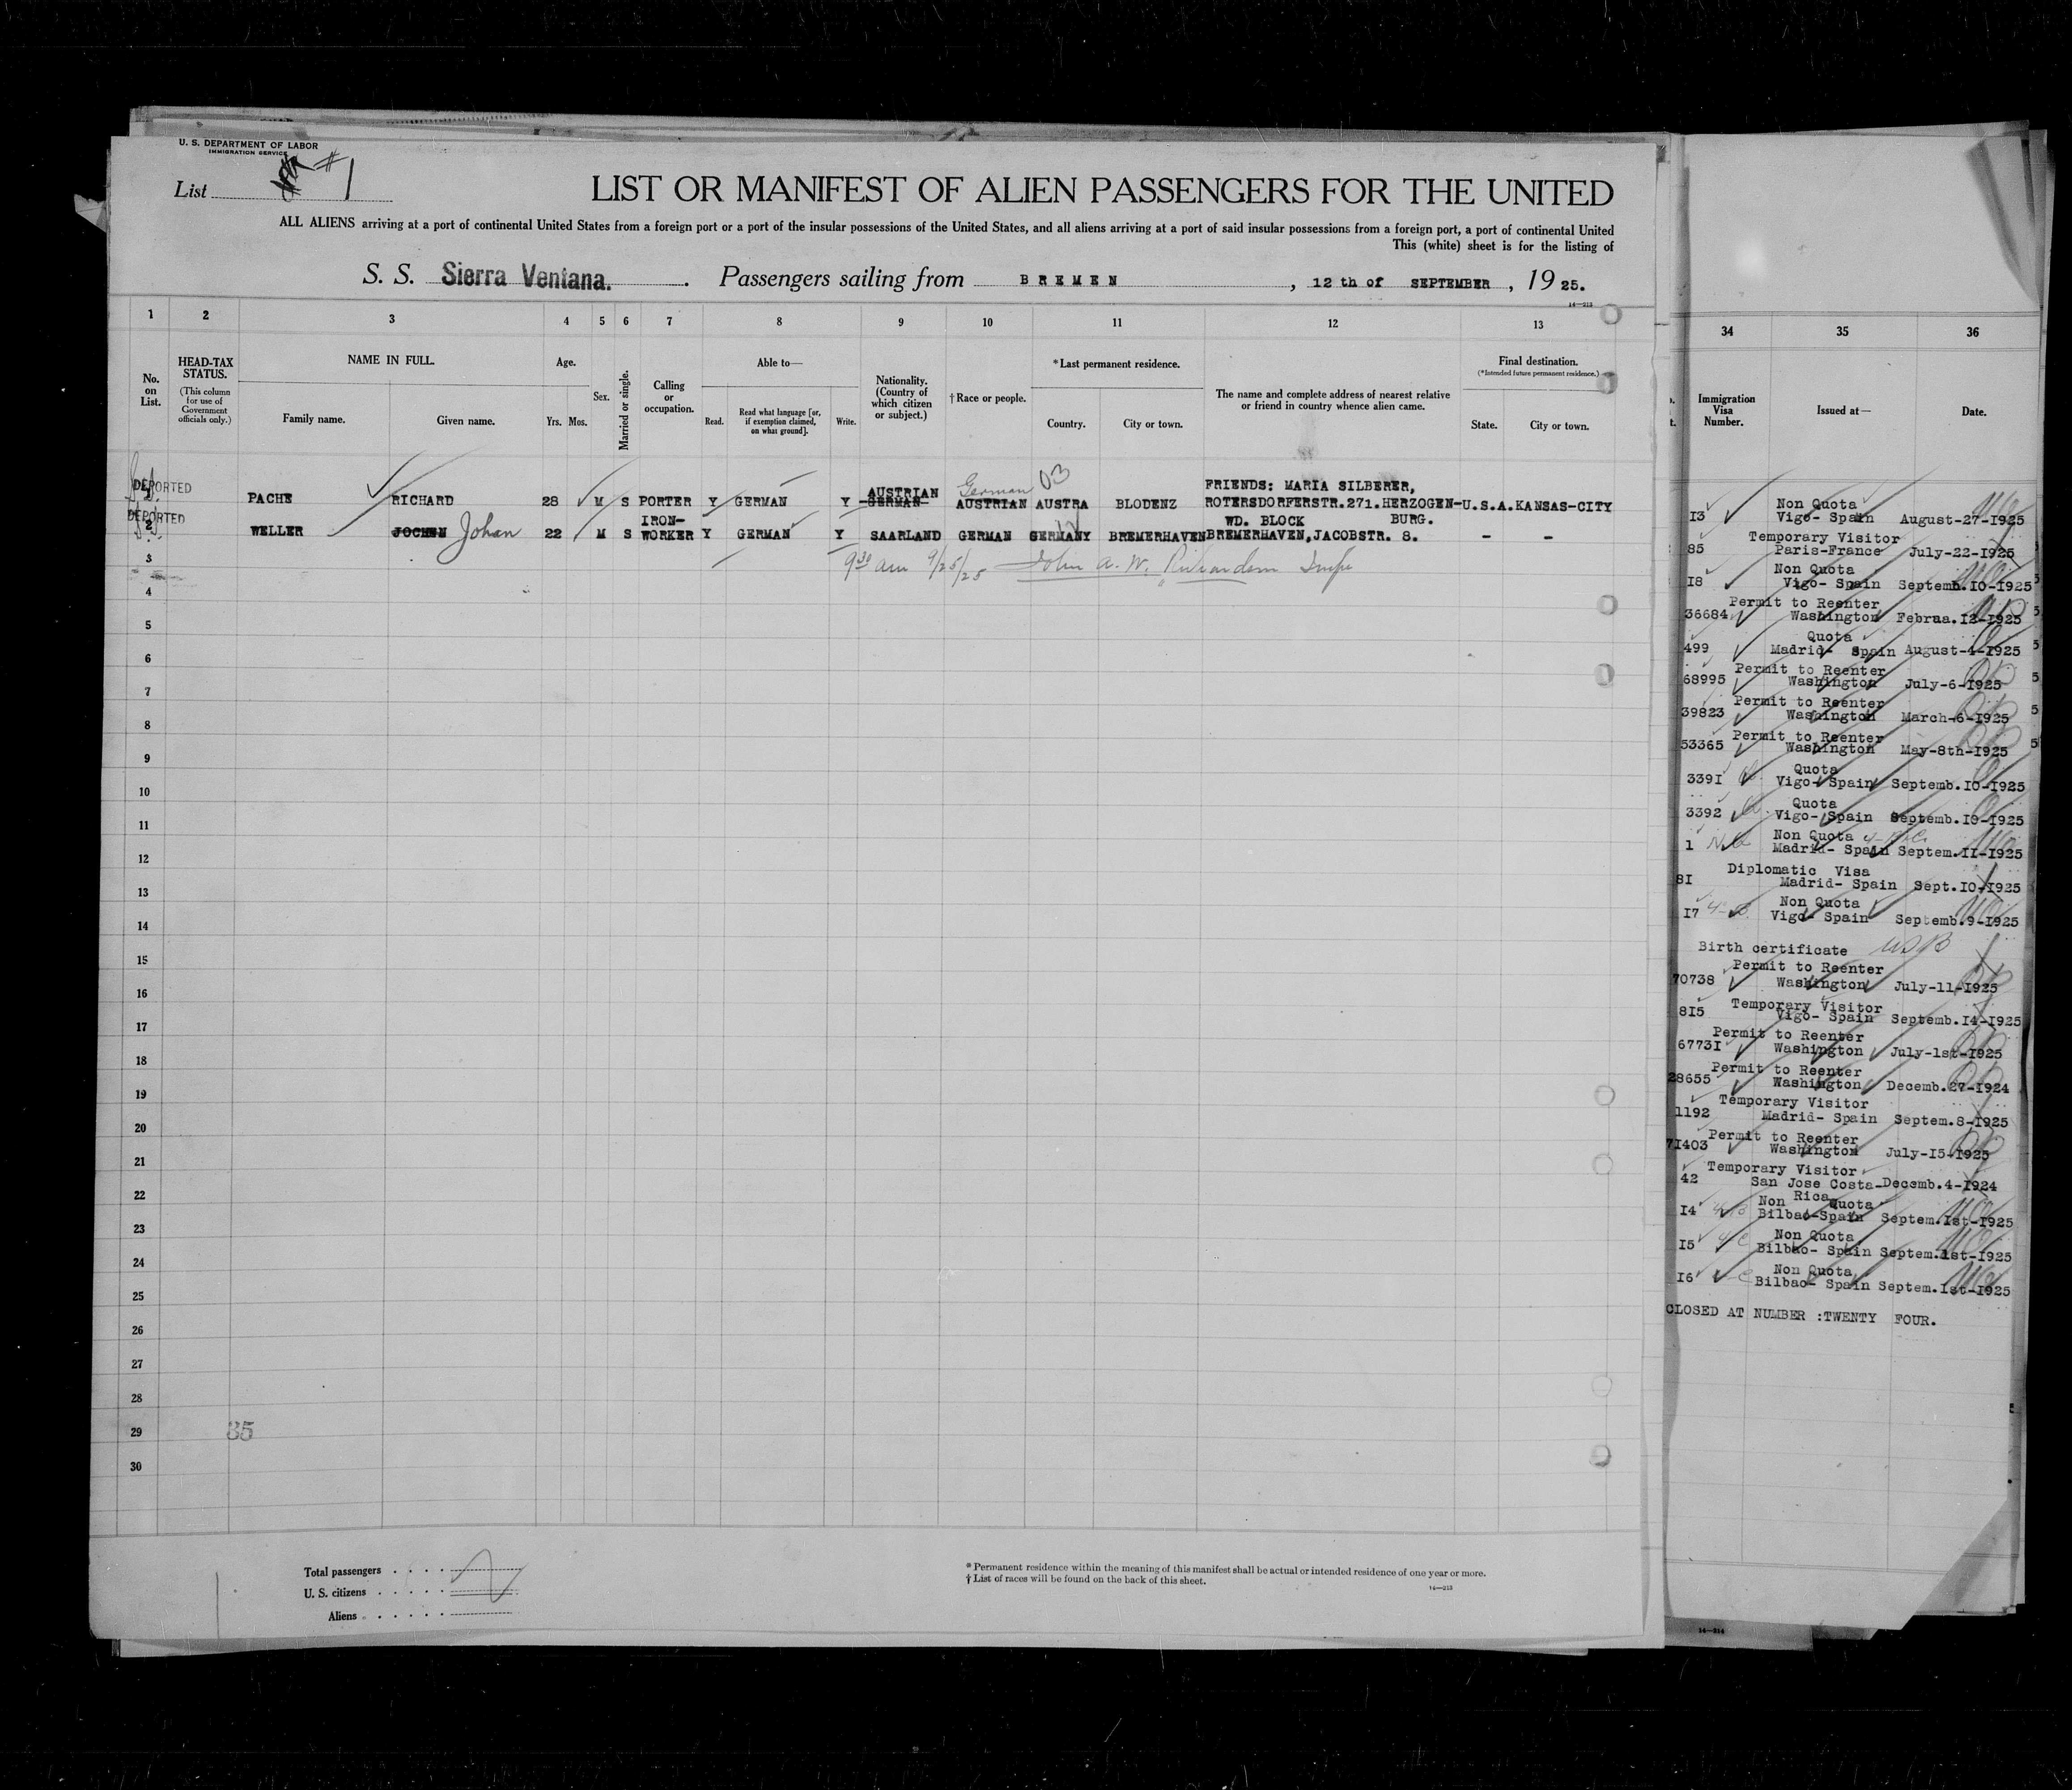 U. S. DEPARTMENT OF LABOR
IMMIGRATION SERVICE
List #1
LIST OR MANIFEST OF ALIEN PASSENGERS FOR THE UNITED
ALL ALIENS arriving at a port of continental United States from a foreign port or a port of the insular possessions of the United States, and all aliens arriving at a port of said insular possessions from a foreign port, a port of continental United
This (white) sheet is for the listing of
S. S. Sierra Ventana. Passengers sailing from BREMEN, 12 th of SEPTEMBER, 1925.
14—213
1 2 3 4 5 6 7 8 9 10 11 12 13
No. on List.
HEAD-TAX STATUS.
(This column for use of Government officials only.)
NAME IN FULL.
Family name. Given name.
Age.
Yrs. Mos.
Sex.
Married or single.
Calling or occupation.
Able to—
Read. Read what language [or, if exemption claimed, on what ground]. Write.
Nationality. (Country of which citizen or subject.)
† Race or people.
* Last permanent residence.
Country. City or town.
The name and complete address of nearest relative or friend in country whence alien came.
Final destination.
(*Intended future permanent residence.)
State. City or town.
DEPORTED
AUSTRIAN German 03 FRIENDS: MARIA SILBERER,
PACHE RICHARD 28 M S PORTER Y GERMAN Y GERMAN AUSTRIAN AUSTRA BLODENZ ROTERSDORFERSTR.271.HERZOGEN- U.S.A. KANSAS-CITY
DEPORTED
IRON- WD. BLOCK BURG.
2 WELLER JOCHEN Johan 22 M S WORKER Y GERMAN Y SAARLAND GERMAN GERMANY BREMERHAVEN BREMERHAVEN, JACOBSTR. 8. - -
3 9 30 am 9/25/25 John A. W. Insp
4
5
6
7
8
9
10
11
12
13
14
15
16
17
18
19
20
21
22
23
24
25
26
27
28
29 35
30
Total passengers
U. S. citizens
Aliens
* Permanent residence within the meaning of this manifest shall be actual or intended residence of one year or more.
† List of races will be found on the back of this sheet.
14—213
34 35 36
Immigration Visa Number. Issued at— Date.
Non Quota
I3 Vigo- Spain August-27-I925
Temporary Visitor
85 Paris-France July-22-I925
Non Quota
I8 Vigo- Spain Septemb.IO-I925
Permit to Reenter
36684 Washington Februa.I2-I925
Quota
499 Madrid- Spain August-4-I925
Permit to Reenter
68995 Washington July-6-I925
Permit to Reenter
39823 Washington March-6-I925
Permit to Reenter
53365 Washington May-8th-I925
Quota
339I Vigo- Spain Septemb.IO-I925
Quota
3392 Vigo- Spain Septemb.I0-I925
Non Quota
1 Madrid- Spain Septem.II-I925
Diplomatic Visa
8I Madrid- Spain Sept.IO-I925
Non Quota
I7 Vigo- Spain Septemb.9-I925
Birth certificate USB
Permit to Reenter
70738 Washington July-11-I925
Temporary Visitor
8I5 Vigo- Spain Septemb.I4-I925
Permit to Reenter
6773I Washington July-1st-I925
Permit to Reenter
28655 Washington Decemb.27-I924
Temporary Visitor
1192 Madrid- Spain Septem.8-I925
Permit to Reenter
7I403 Washington July-I5-I925
Temporary Visitor
42 San Jose Costa- Decemb.4-I924
Rica
Non Quota
I4 Bilbao-Spain Septem.1st-I925
Non Quota
I5 Bilbao- Spain Septem.1st-I925
Non Quota
I6 Bilbao- Spain Septem.1st-I925
CLOSED AT NUMBER :TWENTY FOUR.
14—214